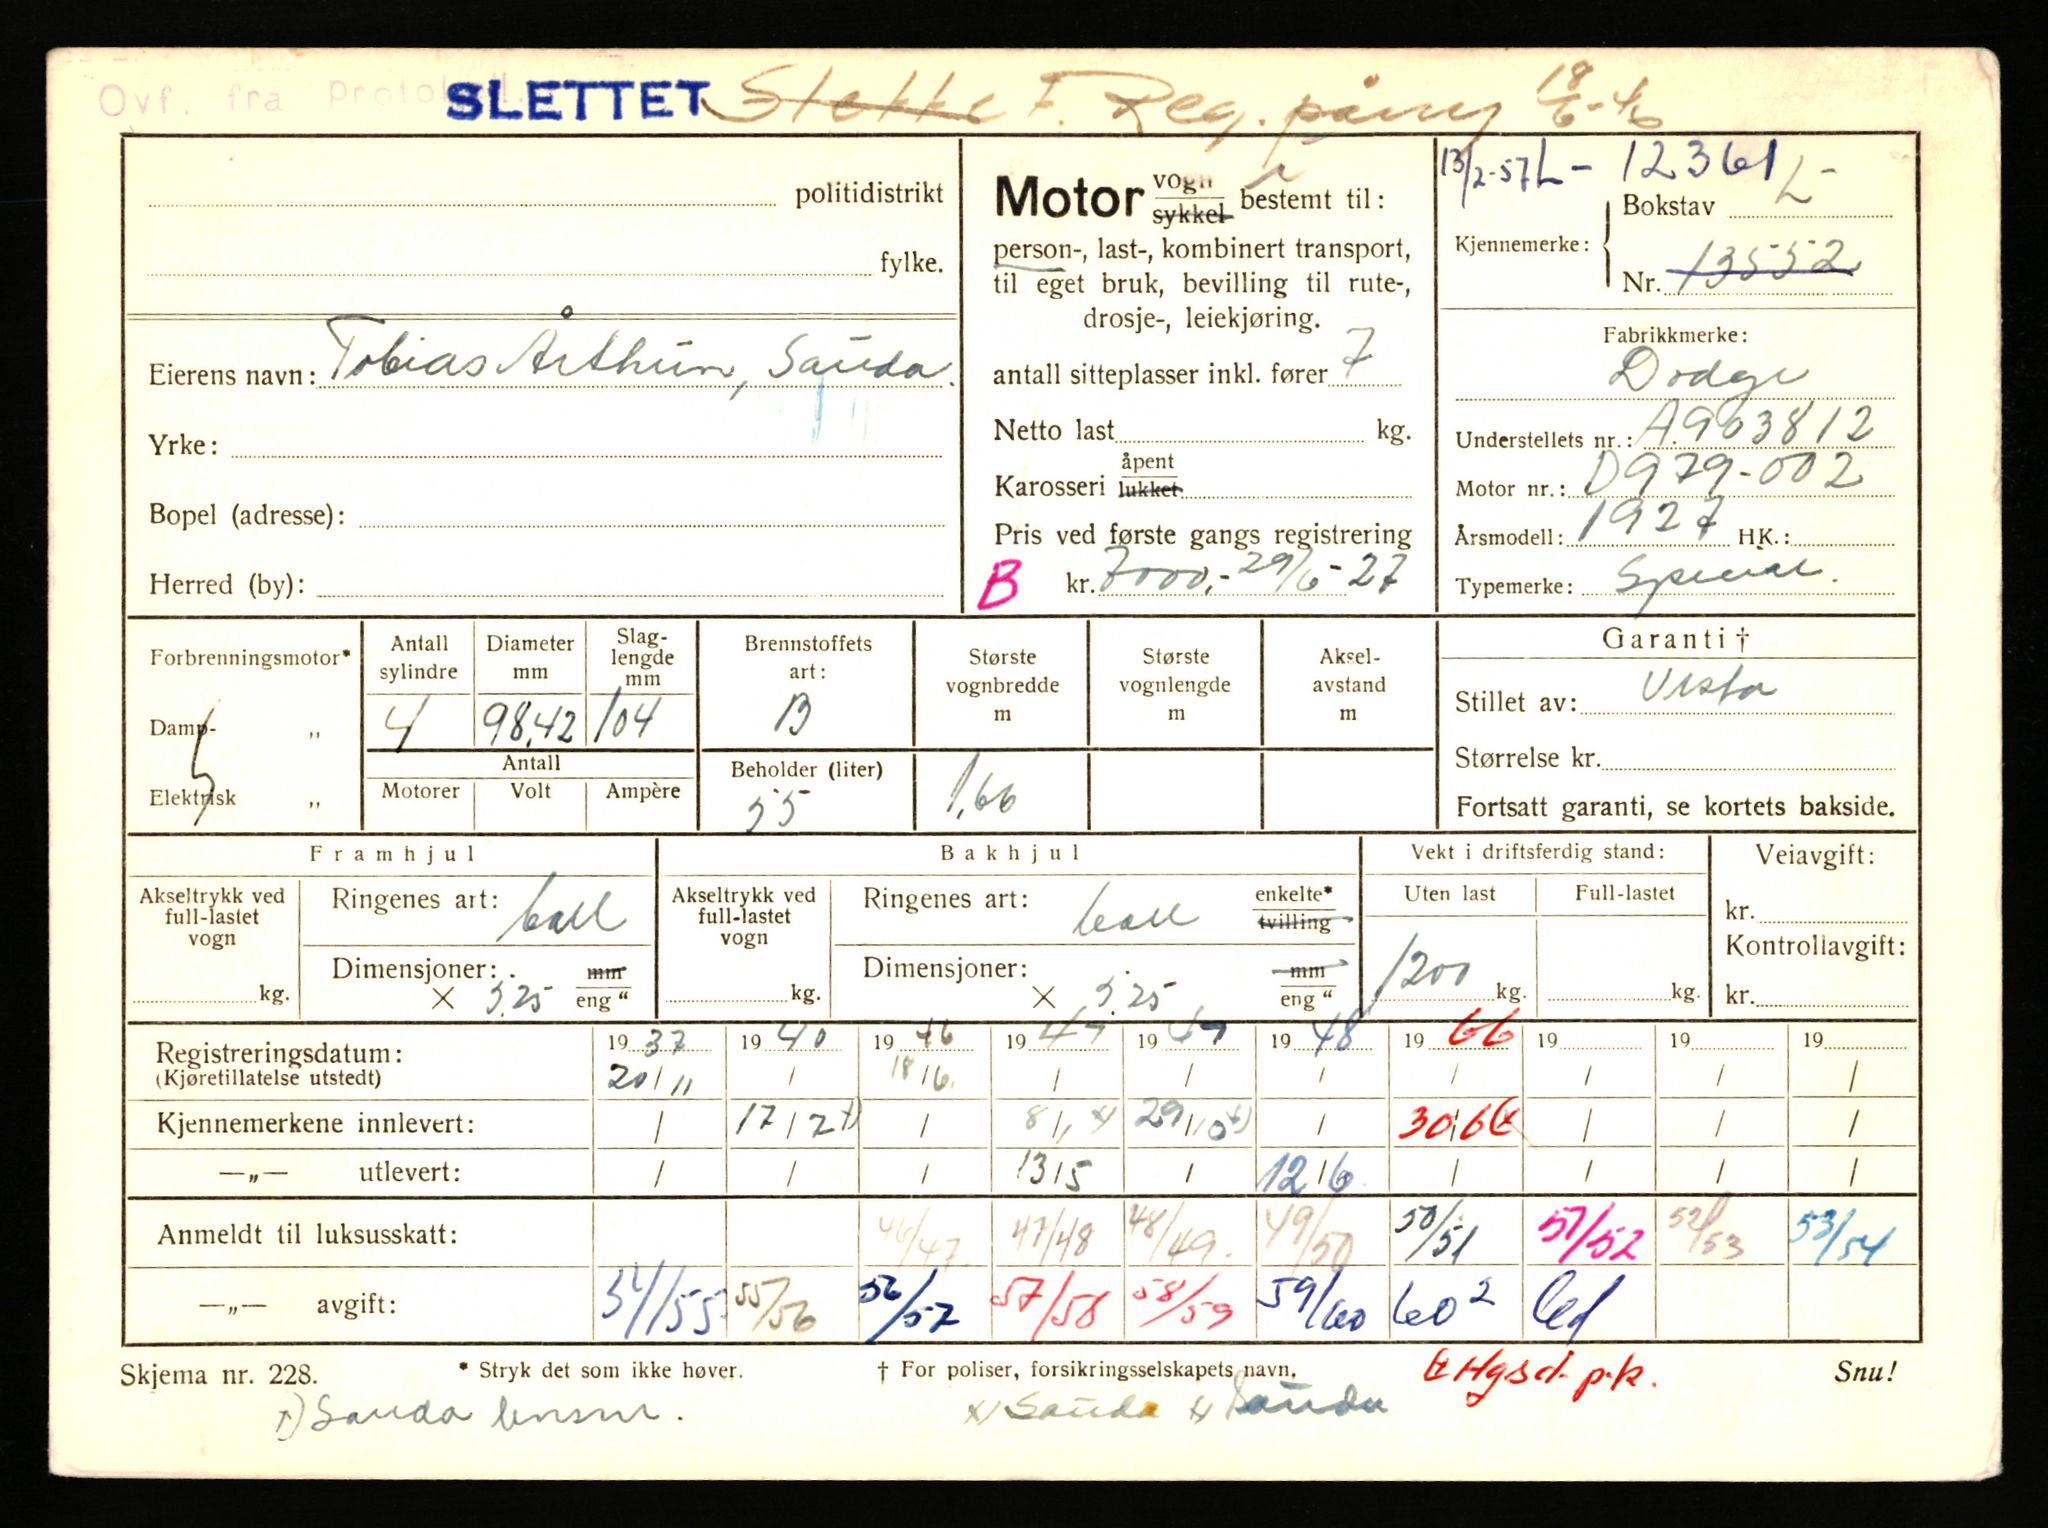 Ovf. fra Protokoll
SLETTET Slekke F. Reg. påny 18/6-46
politidistrikt
fylke.
Eierens navn: Tobias Årthun, Sauda.
Yrke:
Bopel (adresse):
Herred (by):
Motor vogn sykkel bestemt til:
person-, last-, kombinert transport,
til eget bruk, bevilling til rute-,
drosje-, leiekjøring.
antall sitteplasser inkl. fører 7
Netto last kg.
Karosseri åpent lukket
Pris ved første gangs registrering
B kr. 7000,- 29/6-27
13/2-57 L- 12361
Kjennemerke: Bokstav L-
Nr. 13552
Fabrikkmerke:
Dodge
Understellets nr.: A.963812
Motor nr.: D979-002
Årsmodell: 1927 HK.:
Typemerke: Special.
Forbrenningsmotor*
Damp- „
Elektrisk „
Antall sylindre
4
Diameter mm
98,42
Slag-lengde mm
104
Antall
Motorer Volt Ampère
Brennstoffets art:
B
Beholder (liter)
55
Største vognbredde m
1,66
Største vognlengde m
Aksel-avstand m
Garanti †
Stillet av: Vesta
Størrelse kr.
Fortsatt garanti, se kortets bakside.
Framhjul
Akseltrykk ved full-lastet vogn
kg.
Ringenes art: ball
Dimensjoner: × 5.25 mm eng "
Bakhjul
Akseltrykk ved full-lastet vogn
kg.
Ringenes art: ball enkelte* tvilling
Dimensjoner: × 5.25 mm eng "
Vekt i driftsferdig stand:
Uten last Full-lastet
1200 kg. kg.
Veiavgift:
kr.
Kontrollavgift:
kr.
Registreringsdatum: 1937 1940 1946 1947 1947 1948 1966 19 19 19
(Kjøretillatelse utstedt) 20/11 / 18/6. / / / / / / /
Kjennemerkene innlevert: / 17/7 †) / 8/1 x) 29/10 x) / 30/6 (x / / /
—„— utlevert: / / / 13/5 / 12/6 / / / /
Anmeldt til luksusskatt: 46/47 47/48 48/49. 49/50 50/51 51/52 52/53 53/54
—„— avgift: 54/55 55/56 56/57 57/58 58/59 59/60 60² 61
Skjema nr. 228. * Stryk det som ikke høver. † For poliser, forsikringsselskapets navn. Snu!
Hgsd. p.k.
†) Sauda x) Sauda x) Sauda